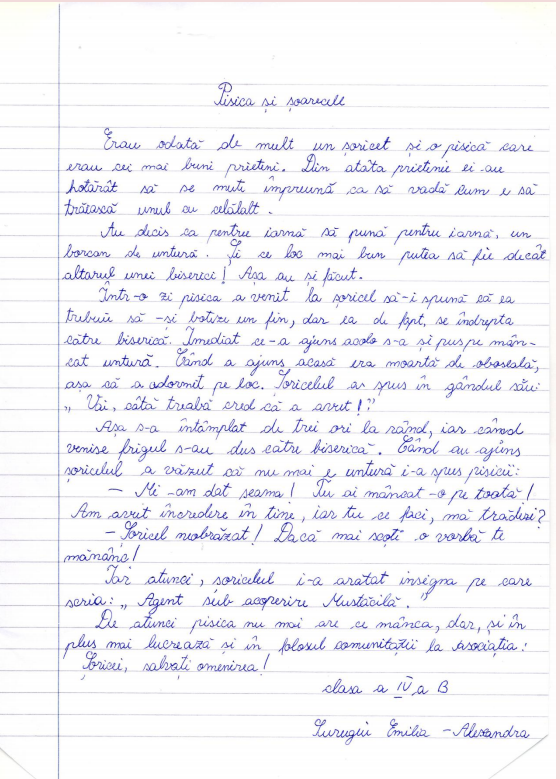 Pisica și șoarecele
Erau odată de mult un șoricel și o pisică care
erau cei mai buni prietini. Din atâta prietenie ei au
hotărât să se mute împreună ca să vadă cum e să
trăiască unul cu celălalt.
Au decis ca pentru iarnă să pună pentru iarnă, un
borcan de untură. Și ce loc mai bun putea să fie decât
altarul unei biserici! Așa au și făcut.
Într-o zi pisica a venit la șoricel să-i spună că ea
trebuie să-și botize un fin, dar ea de fapt, se îndrepta
către biserică. Imediat ce-a ajuns acolo s-a și pus pe mân-
cat untură. Când a ajuns acasă era moartă de oboseală,
așa că a adormit pe loc. Șoricelul ar spus în gândul său:
„Vai, câtă treabă cred că a avut!”
Așa s-a întâmplat de trei ori la rând, iar când
venise frigul s-au dus către biserică. Când au ajuns
șoricelul a văzut că nu mai e untură i-a spus pisicii:
– Mi-am dat seama! Tu ai mâncat-o pe toată!
Am avut încredere în tine, iar tu ce faci, mă trădezi?
– Șoricel neobrăzat! Dacă mai scoți o vorbă te
mănânc!
Iar atunci, soricelul i-a aratat insigna pe care
scria: „Agent sub acoperire Mustăcilă.”
De atunci pisica nu mai are ce mânca, dar, și în
plus mai lucrează și în folosul comunității la asociația:
Șoricei, salvați omenirea!
clasa a IV a B
Surugiu Emilia-Alexandra